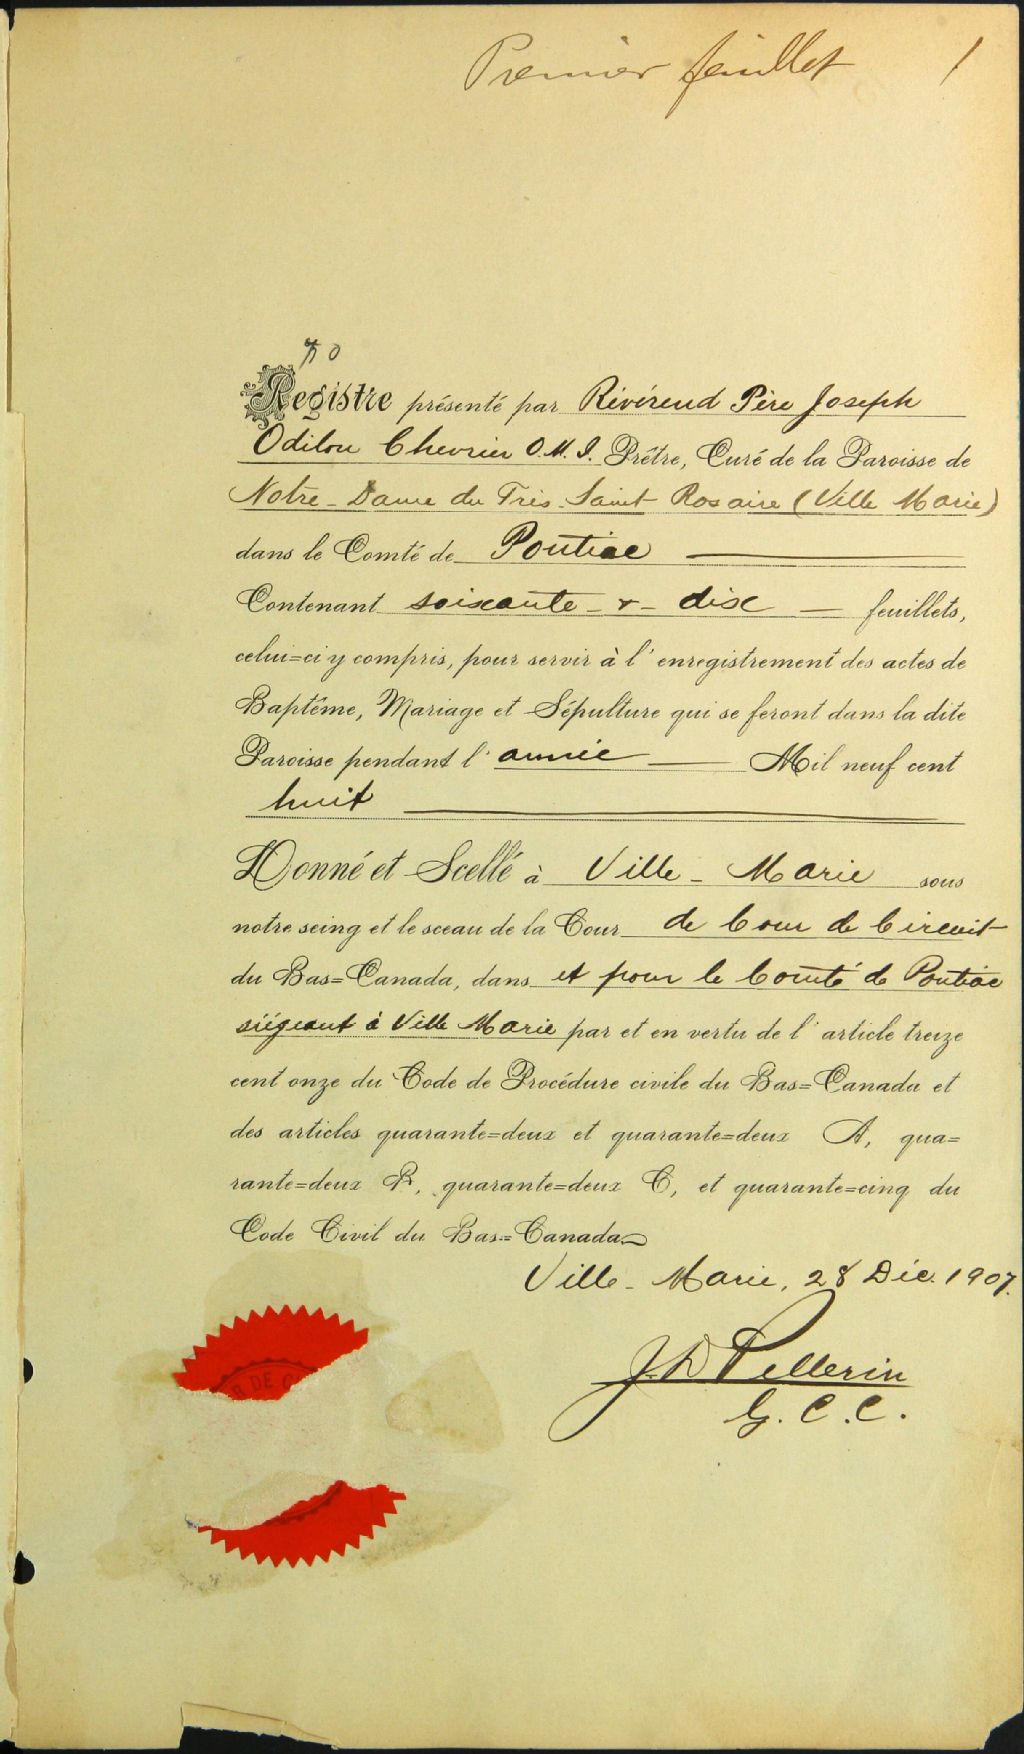 Premier feuillet 1
70
Registre présenté par Révérend Père Joseph
Odilon Chevrier O.M.I. Prêtre, Curé de la Paroisse de
Notre-Dame du Très-Saint Rosaire (Ville Marie)
dans le Comté de Pontiac
Contenant soixante & dix feuillets,
celui=ci y compris, pour servir à l'enregistrement des actes de
Baptême, Mariage et Sépulture qui se feront dans la dite
Paroisse pendant l'année Mil neuf cent
huit
Donné et Scellé à Ville-Marie sous
notre seing et le sceau de la Cour de Cour de Circuit
du Bas=Canada, dans et pour le Comté de Pontiac
siégeant à Ville Marie par et en vertu de l'article treize
cent onze du Code de Procédure civile du Bas=Canada et
des articles quarante=deux et quarante=deux A, qua=
rante=deux B, quarante=deux C, et quarante=cinq du
Code Civil du Bas=Canada
Ville-Marie, 28 Déc. 1907.
J. D Pellerin
G. C. C.
R DE C